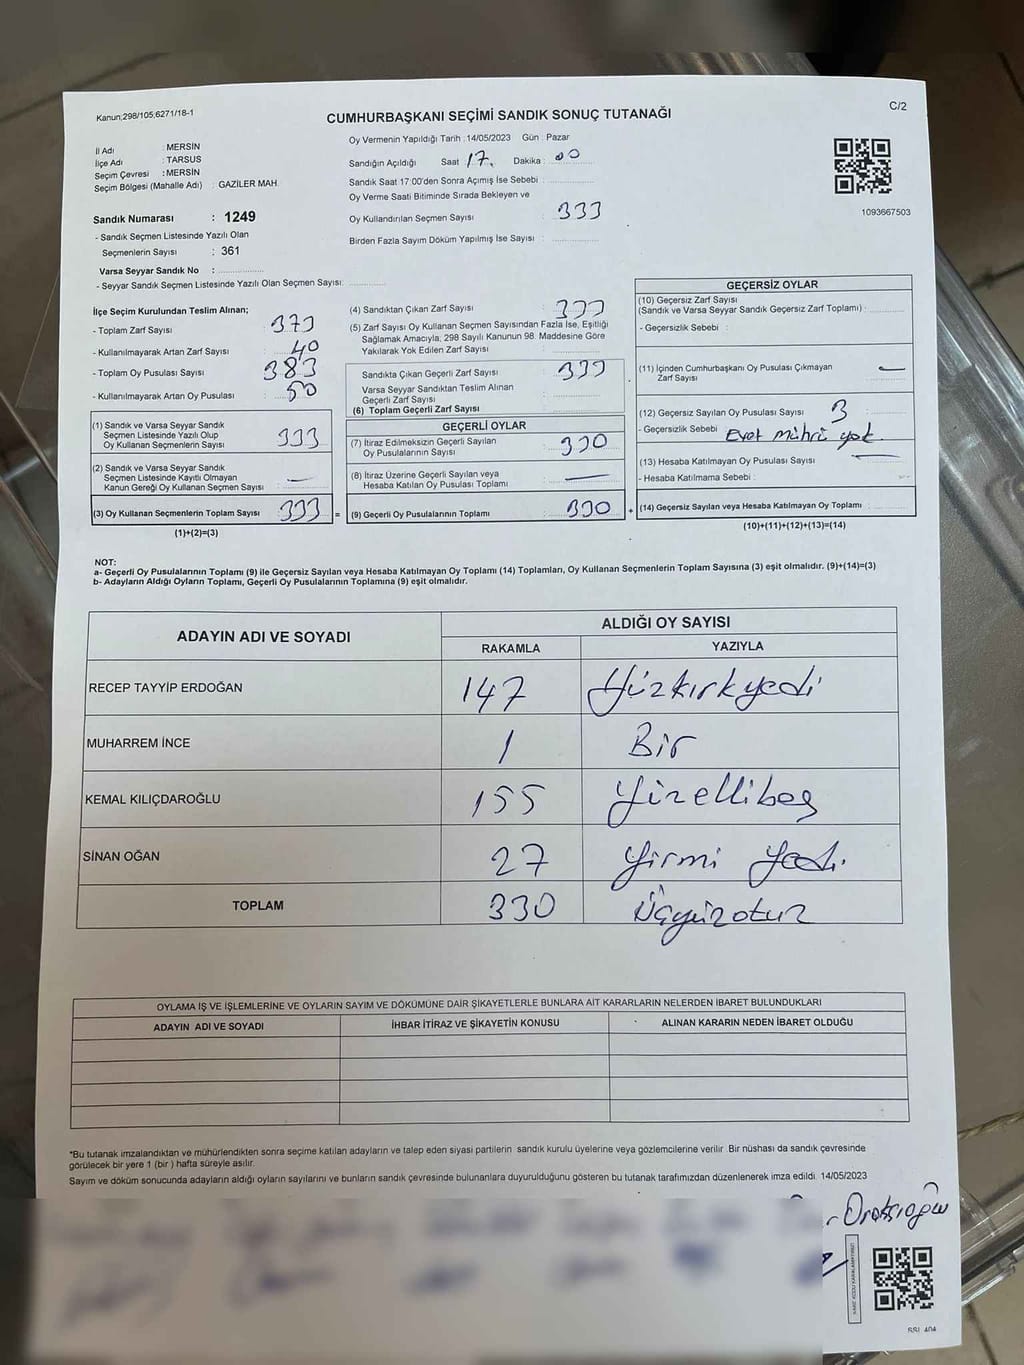 Kanun;298/105;6271/18-1
C/2
CUMHURBAŞKANI SEÇİMİ SANDIK SONUÇ TUTANAĞI
Oy Vermenin Yapıldığı Tarih : 14/05/2023 Gün : Pazar
İl Adı : MERSİN
İlçe Adı : TARSUS
Seçim Çevresi : MERSİN
Seçim Bölgesi (Mahalle Adı) : GAZİLER MAH.
Sandık Numarası : 1249
- Sandık Seçmen Listesinde Yazılı Olan
Seçmenlerin Sayısı : 361
Varsa Seyyar Sandık No :
- Seyyar Sandık Seçmen Listesinde Yazılı Olan Seçmen Sayısı:
Sandığın Açıldığı Saat 17. Dakika : 00
Sandık Saat 17:00'den Sonra Açımış İse Sebebi :
Oy Verme Saati Bitiminde Sırada Bekleyen ve
Oy Kullandırılan Seçmen Sayısı : 333
Birden Fazla Sayım Döküm Yapılmış İse Sayısı :
1093667503
İlçe Seçim Kurulundan Teslim Alınan;
- Toplam Zarf Sayısı : 373
- Kullanılmayarak Artan Zarf Sayısı : 40
- Toplam Oy Pusulası Sayısı : 383
- Kullanılmayarak Artan Oy Pusulası : 50
(1) Sandık ve Varsa Seyyar Sandık
Seçmen Listesinde Yazılı Olup
Oy Kullanan Seçmenlerin Sayısı : 333
(2) Sandık ve Varsa Seyyar Sandık
Seçmen Listesinde Kayıtlı Olmayan
Kanun Gereği Oy Kullanan Seçmen Sayısı : —
(3) Oy Kullanan Seçmenlerin Toplam Sayısı : 333 =
(1)+(2)=(3)
(4) Sandıktan Çıkan Zarf Sayısı : 333
(5) Zarf Sayısı Oy Kullanan Seçmen Sayısından Fazla İse, Eşitliği
Sağlamak Amacıyla, 298 Sayılı Kanunun 98. Maddesine Göre
Yakılarak Yok Edilen Zarf Sayısı :
Sandıkta Çıkan Geçerli Zarf Sayısı : 333
Varsa Seyyar Sandıktan Teslim Alınan
Geçerli Zarf Sayısı
(6) Toplam Geçerli Zarf Sayısı
GEÇERLİ OYLAR
(7) İtiraz Edilmeksizin Geçerli Sayılan
Oy Pusulalarının Sayısı : 330
(8) İtiraz Üzerine Geçerli Sayılan veya
Hesaba Katılan Oy Pusulası Toplamı : —
(9) Geçerli Oy Pusulalarının Toplamı : 330 +
GEÇERSİZ OYLAR
(10) Geçersiz Zarf Sayısı
(Sandık ve Varsa Seyyar Sandık Geçersiz Zarf Toplamı) :
- Geçersizlik Sebebi :
(11) İçinden Cumhurbaşkanı Oy Pusulası Çıkmayan
Zarf Sayısı —
(12) Geçersiz Sayılan Oy Pusulası Sayısı : 3
- Geçersizlik Sebebi : Evet mührü yok
(13) Hesaba Katılmayan Oy Pusulası Sayısı : —
- Hesaba Katılmama Sebebi :
(14) Geçersiz Sayılan veya Hesaba Katılmayan Oy Toplamı :
(10)+(11)+(12)+(13)=(14)
NOT:
a- Geçerli Oy Pusulalarının Toplamı (9) ile Geçersiz Sayılan veya Hesaba Katılmayan Oy Toplamı (14) Toplamları, Oy Kullanan Seçmenlerin Toplam Sayısına (3) eşit olmalıdır. (9)+(14)=(3)
b- Adayların Aldığı Oyların Toplamı, Geçerli Oy Pusulalarının Toplamına (9) eşit olmalıdır.
ADAYIN ADI VE SOYADI ALDIĞI OY SAYISI
RAKAMLA YAZIYLA
RECEP TAYYİP ERDOĞAN 147 Yüzkırkyedi
MUHARREM İNCE 1 Bir
KEMAL KILIÇDAROĞLU 155 Yüzellibeş
SİNAN OĞAN 27 Yirmi Yedi.
TOPLAM 330 Üçyüzotuz
OYLAMA İŞ VE İŞLEMLERİNE VE OYLARIN SAYIM VE DÖKÜMÜNE DAİR ŞİKAYETLERLE BUNLARA AİT KARARLARIN NELERDEN İBARET BULUNDUKLARI
ADAYIN ADI VE SOYADI İHBAR İTİRAZ VE ŞİKAYETİN KONUSU ALINAN KARARIN NEDEN İBARET OLDUĞU
*Bu tutanak imzalandıktan ve mühürlendikten sonra seçime katılan adayların ve talep eden siyasi partilerin sandık kurulu üyelerine veya gözlemcilerine verilir. Bir nüshası da sandık çevresinde
görülecek bir yere 1 (bir ) hafta süreyle asılır.
Sayım ve döküm sonucunda adayların aldığı oyların sayılarını ve bunların sandık çevresinde bulunanlara duyurulduğunu gösteren bu tutanak tarafımızdan düzenlenerek imza edildi. 14/05/2023